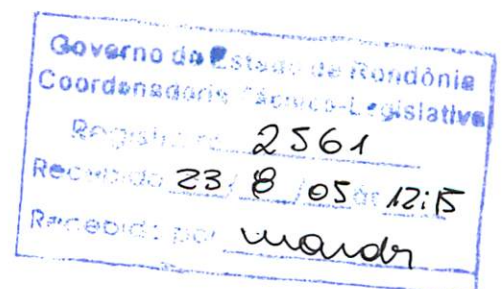 Governo do Estado de Rondônia
Coordenadoria Técnico-Legislativa
Registro nº 2561
Recebido 23/8/05 às 12:15
Recebido por